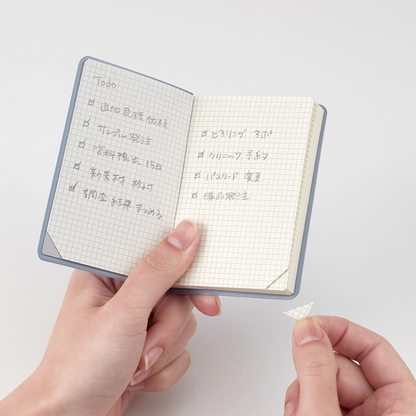 Todo
☑ 追加見積依頼
☑ サンプル発注
☑ 資料提出 15日
☑ 新素材 検討
☑ 調査結果まとめる
☑ ヒアリング メモ
☑ クリニック 予約
☑ パスワード 変更
☑ 備品発注